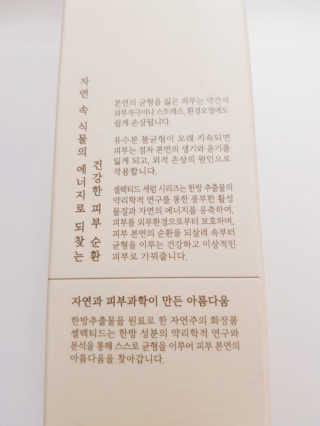 자연 속 식물의 에너지로 되찾는
건강한 피부 순환
본연의 균형을 잃은 피부는 약간의
피부자극이나 스트레스, 환경오염에도
쉽게 손상됩니다.
유수분 불균형이 오래 지속되면
피부는 점차 본연의 생기와 윤기를
잃게 되고, 외적 손상의 원인으로
작용합니다.
셀렉티드 세럼 시리즈는 한방 추출물의
약리학적 연구를 통한 풍부한 활성
물질과 자연의 에너지를 응축하여,
피부를 외부환경으로부터 보호하며,
피부 본연의 순환을 되살려 속부터
균형을 이루는 건강하고 이상적인
피부로 가꿔줍니다.
자연과 피부과학이 만든 아름다움
한방추출물을 원료로 한 자연주의 화장품
셀렉티드는 한방 성분의 약리학적 연구와
분석을 통해 스스로 균형을 이루어 피부 본연의
아름다움을 찾아갑니다.